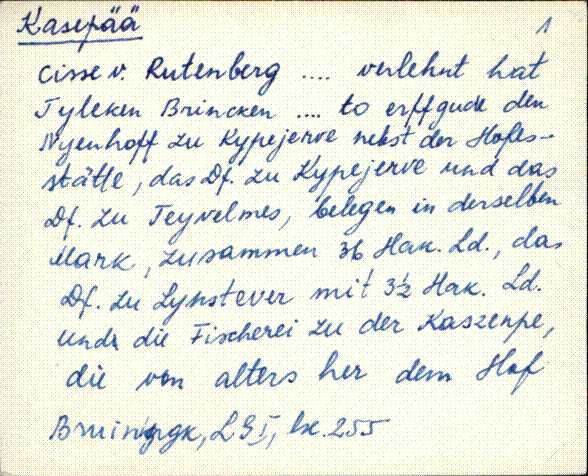 Kasepää
1
Cisse v. Rutenberg .... verlehnt hat
Tyleken Brincken .... to erffgude den
Nyenhoff zu Kypejerve nebst der Hofes-
stätte, das Df. zu Kypejerve und das
Df. zu Teyvelmes, belegen in derselben
Mark, zusammen 36 Hak. Ld., das
Df. zu Lynstever mit 3½ Hak. Ld.
und die Fischerei zu der Kaszenpe,
die von alters her dem Hof
LG I, lk. 255